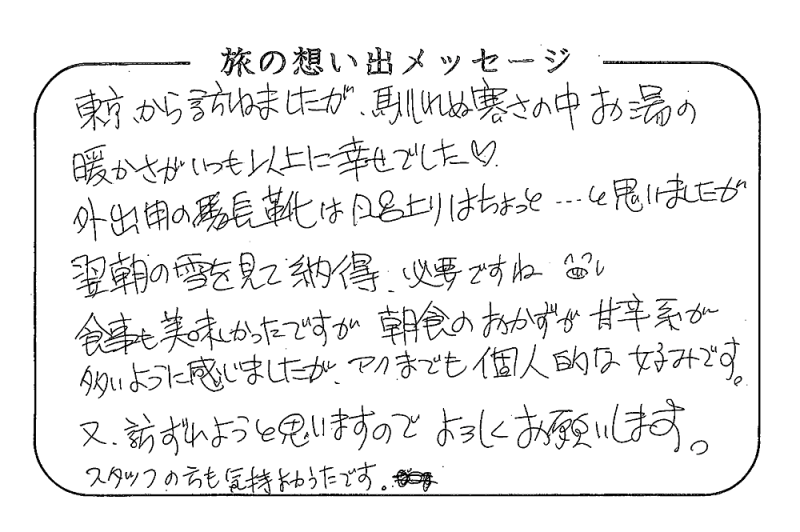 旅の想い出メッセージ
東京から訪ねましたが、馴れぬ寒さの中お湯の
暖かさがいつも以上に幸せでした♡
外出用の長靴は風呂上りはちょっと…と思いましたが
翌朝の雪を見て納得、必要ですね
食事も美味しかったですが 朝食のおかずが甘辛系が
多いように感じましたが、アクまでも個人的な好みです。
又、訪ずれようと思いますので よろしくお願いします。
スタッフの方も気持よかったです。